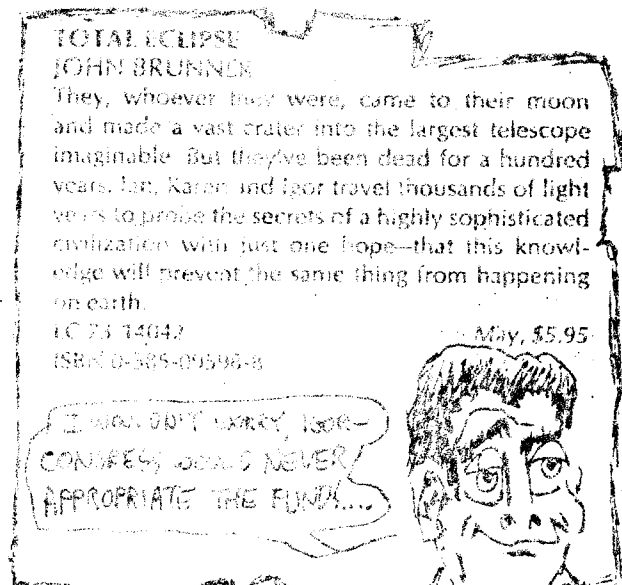 TOTAL ECLIPSE
JOHN BRUNNER
They, whoever they were, came to their moon
and made a vast crater into the largest telescope
imaginable. But they've been dead for a hundred
years. Ian, Karen and Igor travel thousands of light
years to probe the secrets of a highly sophisticated
civilization with just one hope—that this knowl-
edge will prevent the same thing from happening
on earth.
LC 73-14042
May, $5.95
ISBN 0-385-09596-8
I WOULDN'T WORRY, IGOR—
CONGRESS WOULD NEVER
APPROPRIATE THE FUNDS....